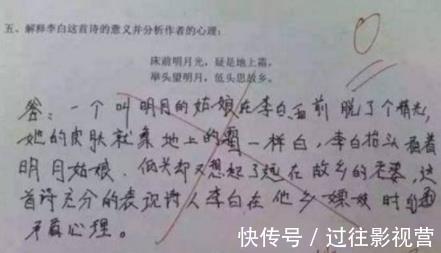 五、解释李白这首诗的意义并分析作者的心理：
床前明月光，疑是地上霜，
举头望明月，低头思故乡。
0
答：一个叫明月的姑娘在李白面前脱了个精光，
她的皮肤就象地上的霜一样白，李白抬头看着
明月姑娘，低头却又想起了远在故乡的老婆，这
首诗充分的表现诗人李白在他乡嫖妓时的
矛盾心理。
快传号／过往影视营